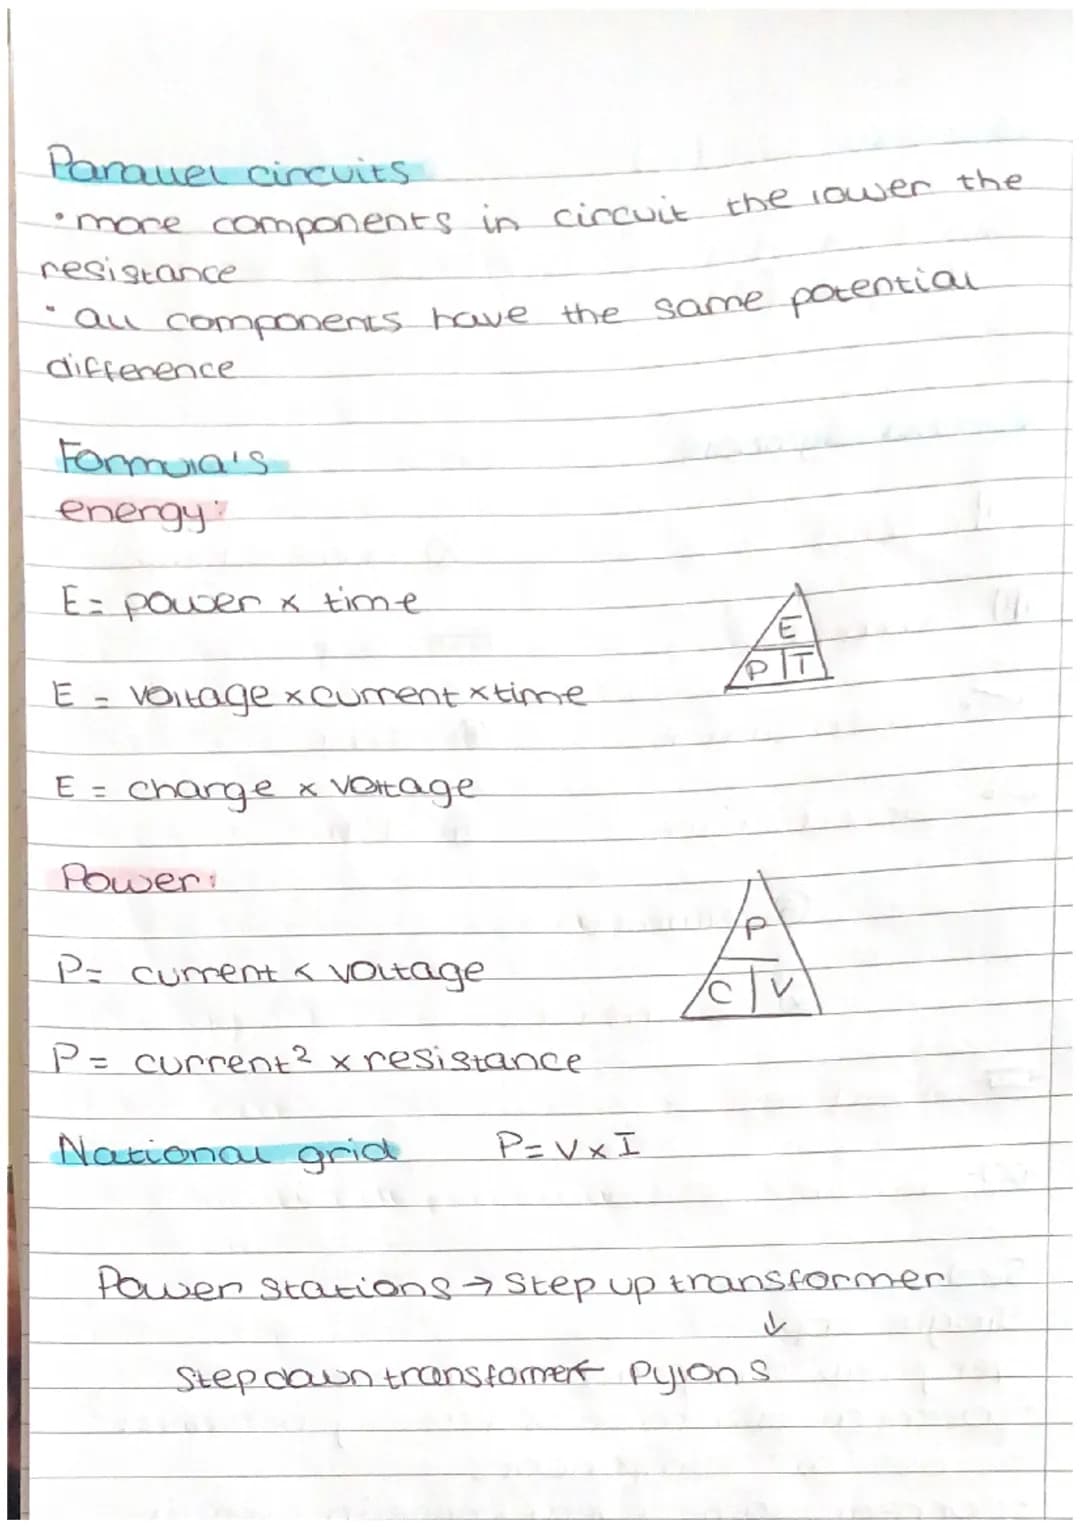 Parallel circuits
• more components in circuit the lower the
resistance
• all components have the same potential
difference
Formula's
energy:
E = power x time
E
P T
E = voltage x current x time
E = charge x voltage
Power:
P
P = current x voltage
C V
P = current² x resistance
National grid P = V x I
Power stations → Step up transformer
↓
Step down transformer ← Pylons